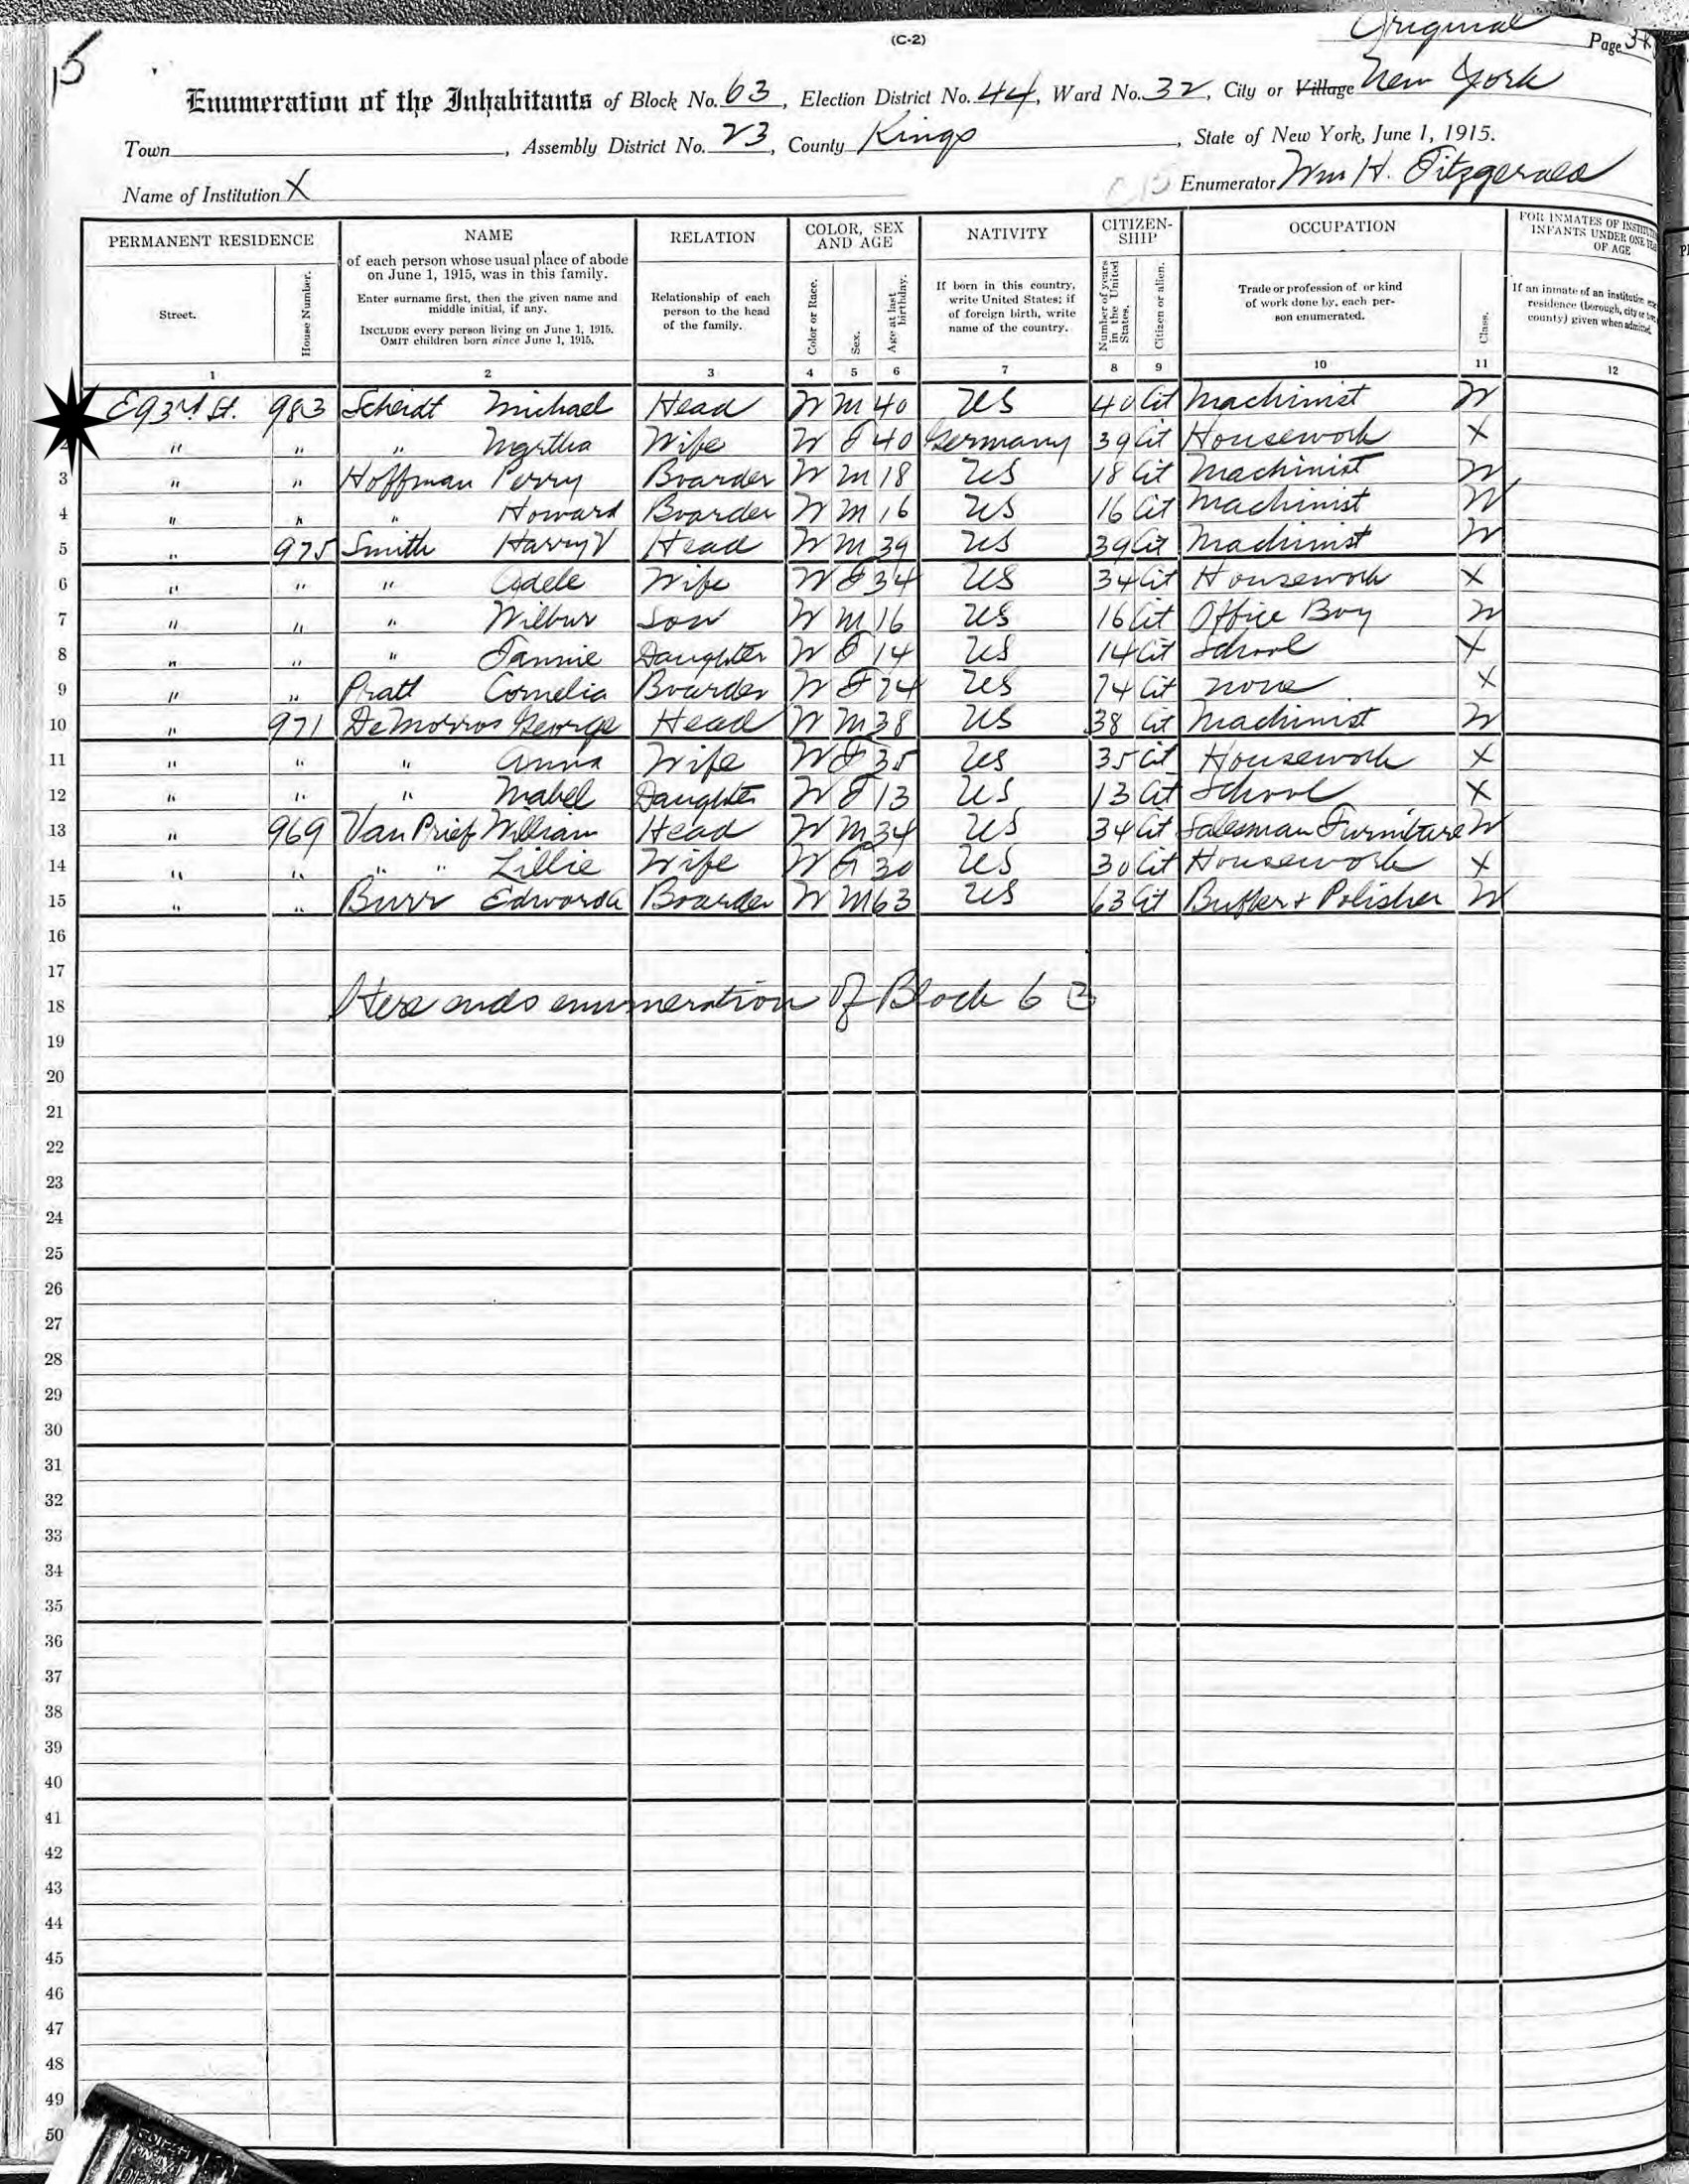 15
(C-2)
Original
Page 38
Enumeration of the Inhabitants of Block No. 63, Election District No. 44, Ward No. 32, City or Village New York
Town, Assembly District No. 23, County Kings, State of New York, June 1, 1915.
Name of Institution X Enumerator Wm H. Fitzgerald
PERMANENT RESIDENCE NAME RELATION COLOR, SEX AND AGE NATIVITY CITIZEN-SHIP OCCUPATION FOR INMATES OF INSTITU INFANTS UNDER ONE YEAR OF AGE
Street.
House Number.
of each person whose usual place of abode
on June 1, 1915, was in this family.
Enter surname first, then the given name and
middle initial, if any.
INCLUDE every person living on June 1, 1915.
OMIT children born since June 1, 1915.
Relationship of each
person to the head
of the family.
Color or Race.
Sex.
Age at last birthday.
If born in this country,
write United States; if
of foreign birth, write
name of the country.
Number of years in the United States.
Citizen or alien.
Trade or profession of or kind
of work done by, each per-
son enumerated.
Class.
If an inmate of an institution
residence (borough, city or
county) given when admitted.
1 2 3 4 5 6 7 8 9 10 11 12
E 93rd St. 983 Scheidt Michael Head W M 40 US 40 Cit Machinist W
2 " " " Martha Wife W F 40 Germany 39 Cit Housework X
3 " " Hoffman Perry Boarder W M 18 US 18 Cit Machinist W
4 " " " Howard Boarder W M 16 US 16 Cit Machinist W
5 " 975 Smith Harry V Head W M 39 US 39 Cit Machinist W
6 " " " Adele Wife W F 34 US 34 Cit Housework X
7 " " " Wilbur Son W M 16 US 16 Cit Office Boy W
8 " " " Fannie Daughter W F 14 US 14 Cit School X
9 " " Pratt Cornelia Boarder W F 74 US 74 Cit none X
10 " 971 DeMorros George Head W M 38 US 38 Cit Machinist W
11 " " " Anna Wife W F 35 US 35 Cit Housework X
12 " " " Mabel Daughter W F 13 US 13 Cit School X
13 " 969 Van Prief William Head W M 34 US 34 Cit Salesman Furniture W
14 " " " " Lillie Wife W F 30 US 30 Cit Housework X
15 " " Burr Edward Boarder W M 63 US 63 Cit Buffer + Polisher W
16
17
18 Here ends enumeration of Block 63
19
20
21
22
23
24
25
26
27
28
29
30
31
32
33
34
35
36
37
38
39
40
41
42
43
44
45
46
47
48
49
50